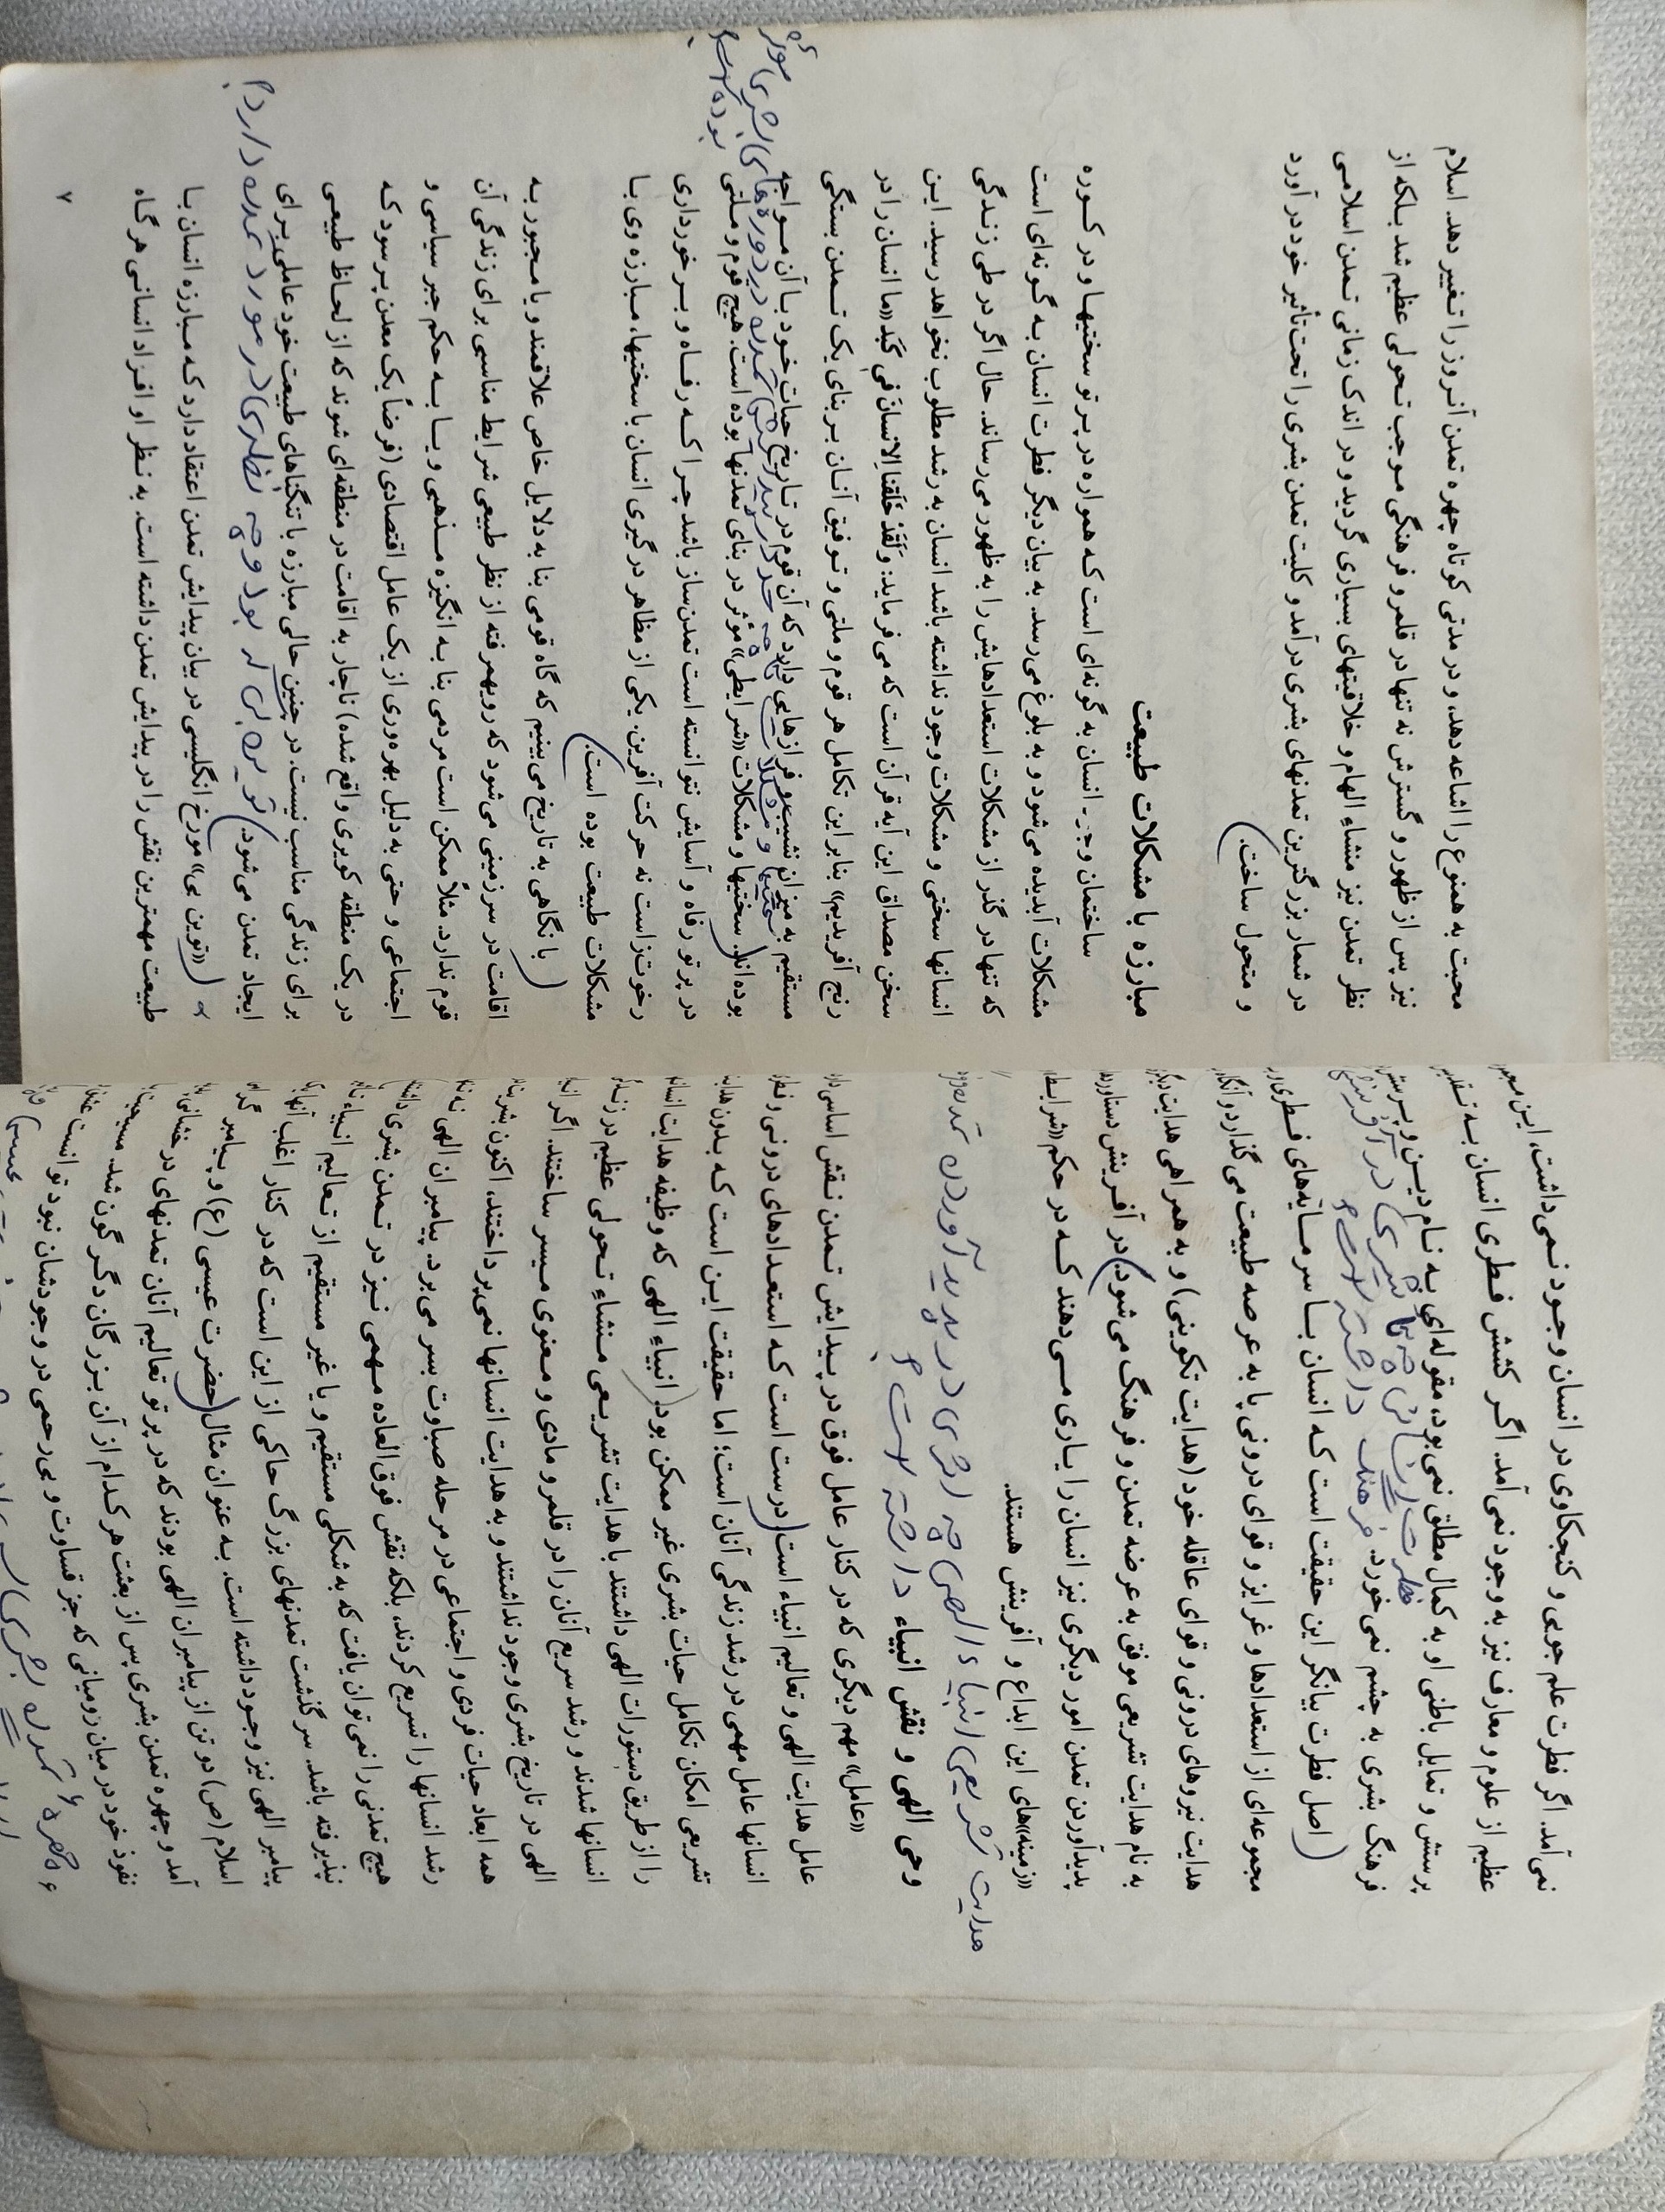 نمی‌آمد. اگر فطرت علم جویی و کنجکاوی در انسان وجود نمی‌داشت، این
عظیم از علوم و معارف نیز به وجود نمی‌آمد. اگر کشش فطری انسان به
پرستش و تمایل باطنی او به کمال مطلق نمی‌بود، مقوله‌ای به نام دین و پرستش
فطرت انسان چه تأثیری در آفرینش
فرهنگ بشری به چشم نمی‌خورد. فرهنگ داشته است؟
(اصل فطرت بیانگر این حقیقت است که انسان با سرمایه‌های فطری
مجموعه‌ای از استعدادها و غرایز و قوای درونی پا به عرصه طبیعت می‌گذارد و
هدایت نیروهای درونی و قوای عاقله خود (هدایت تکوینی) و به همراهی هدایت
به نام هدایت تشریعی موفق به عرضه تمدن و فرهنگ می‌شود) در آفرینش
پدیدآوردن تمدن امور دیگری نیز انسان را یاری می‌دهند که در حکم «شرایط
«زمینه»های این ابداع و آفرینش هستند.
هدایت تشریعی انبیاء الهی چه اثری در پدید آوردن تمدن
وحی الهی و نقش انبیاء داشته است؟
«عامل» مهم دیگری که در کنار عامل فوق در پیدایش تمدن نقش اساسی
عامل هدایت الهی و تعالیم انبیاء است (درست است که استعدادهای درونی و
انسانها عامل مهمی در رشد زندگی آنان است؛ اما حقیقت این است که بدون
تشریعی امکان تکامل حیات بشری غیر ممکن بود) انبیاء الهی که وظیفه هدایت
را از طریق دستورات الهی داشتند با هدایت تشریعی منشاء تحولی عظیم در
انسانها شدند و رشد سریع آنان را در قلمرو مادی و معنوی میسر ساختند. اگر
الهی در تاریخ بشری وجود نداشتند و به هدایت انسانها نمی‌پرداختند، اکنون بشر
همه ابعاد حیات فردی و اجتماعی در مرحله صباوت بسر می‌برد. پیامبران الهی نه
رشد انسانها را تسریع کردند، بلکه نقش فوق العاده مهمی نیز در تمدن بشری
هیچ تمدنی را نمی‌توان یافت که به شکلی مستقیم و یا غیر مستقیم از تعالیم انبیاء
نپذیرفته باشد. سرگذشت تمدنهای بزرگ حاکی از این است که در کنار اغلب
پیامبر الهی نیز وجود داشته است. به عنوان مثال (حضرت عیسی (ع) و پیامبر
اسلام (ص) دو تن از پیامبران الهی بودند که در پرتو تعالیم آنان تمدنهای درخشانی
آمد و چهره تمدن بشری پس از بعثت هر کدام از آن بزرگان دگرگون شد. مسیحیت
نفوذ خود در میان رومیانی که جز قساوت و بی‌رحمی در وجودشان نبود توانست
۶ چهره تمدن بشری
محبت به همنوع را اشاعه دهد، و در مدتی کوتاه چهره تمدن آنروز را تغییر دهد. اسلام
نیز پس از ظهور و گسترش نه تنها در قلمرو فرهنگی موجب تحولی عظیم شد بلکه از
نظر تمدن نیز منشاء الهام و خلاقیتهای بسیاری گردید و در اندک زمانی تمدن اسلامی
در شمار بزرگترین تمدنهای بشری درآمد و کلیت تمدن بشری را تحت تأثیر خود درآورد
و متحول ساخت.)
مبارزه با مشکلات طبیعت
ساختمان وجود انسان به گونه‌ای است که همواره در پرتو سختیها و در کوره
مشکلات آبدیده می‌شود و به بلوغ می‌رسد. به بیان دیگر فطرت انسان به گونه‌ای است
که تنها در گذر از مشکلات استعدادهایش را به ظهور می‌رساند. حال اگر در طی زندگی
انسانها سختی و مشکلات وجود نداشته باشد انسان به رشد مطلوب نخواهد رسید. این
سخن مصداق این آیه قرآن است که می‌فرماید: وَلَقَدْ خَلَقْنَا الْاِنْسانَ فی کَبَد «ما انسان را در
رنج آفریدیم» بنابراین تکامل هر قوم و ملتی و توفیق آنان بر بنای یک تمدن بستگی
مستقیم به میزان نشیب و فرازهایی دارد که آن قوم در تاریخ حیات خود با آن مواجه
سختیها و مشکلات تا چه حد در پیدایش تمدن در دوره‌های بشری مؤثر
بوده است؟
بوده‌اند. (سختیها و مشکلات «شرایطی» مؤثر در بنای تمدنها بوده است. هیچ قوم و ملتی
در پرتو رفاه و آسایش نتوانسته است تمدن‌ساز باشد چرا که رفاه و برخورداری
رخوت‌زاست نه حرکت آفرین. یکی از مظاهر درگیری انسان با سختیها، مبارزه وی با
مشکلات طبیعت بوده است.)
(با نگاهی به تاریخ می‌بینیم که گاه قومی بنا به دلایل خاص علاقمند و یا مجبور به
اقامت در سرزمینی می‌شود که رویهمرفته از نظر طبیعی شرایط مناسبی برای زندگی آن
قوم ندارد. مثلاً ممکن است مردمی بنا به انگیزه مذهبی و یا به حکم جبر سیاسی و
اجتماعی و حتی به دلیل بهره‌وری از یک عامل اقتصادی (فرضاً یک معدن پرسود که
در یک منطقه کویری واقع شده) ناچار به اقامت در منطقه‌ای شوند که از لحاظ طبیعی
برای زندگی مناسب نیست. در چنین حالی مبارزه با تنگناهای طبیعت خود عاملی برای
ایجاد تمدن می‌شود.) توین بی لر بود و چه نظری در مورد تمدن دارد؟
(«توین بی» مورخ انگلیسی در بیان پیدایش تمدن اعتقاد دارد که مبارزه انسان با
طبیعت مهمترین نقش را در پیدایش تمدن داشته است. به نظر او افراد انسانی هر گاه
۷